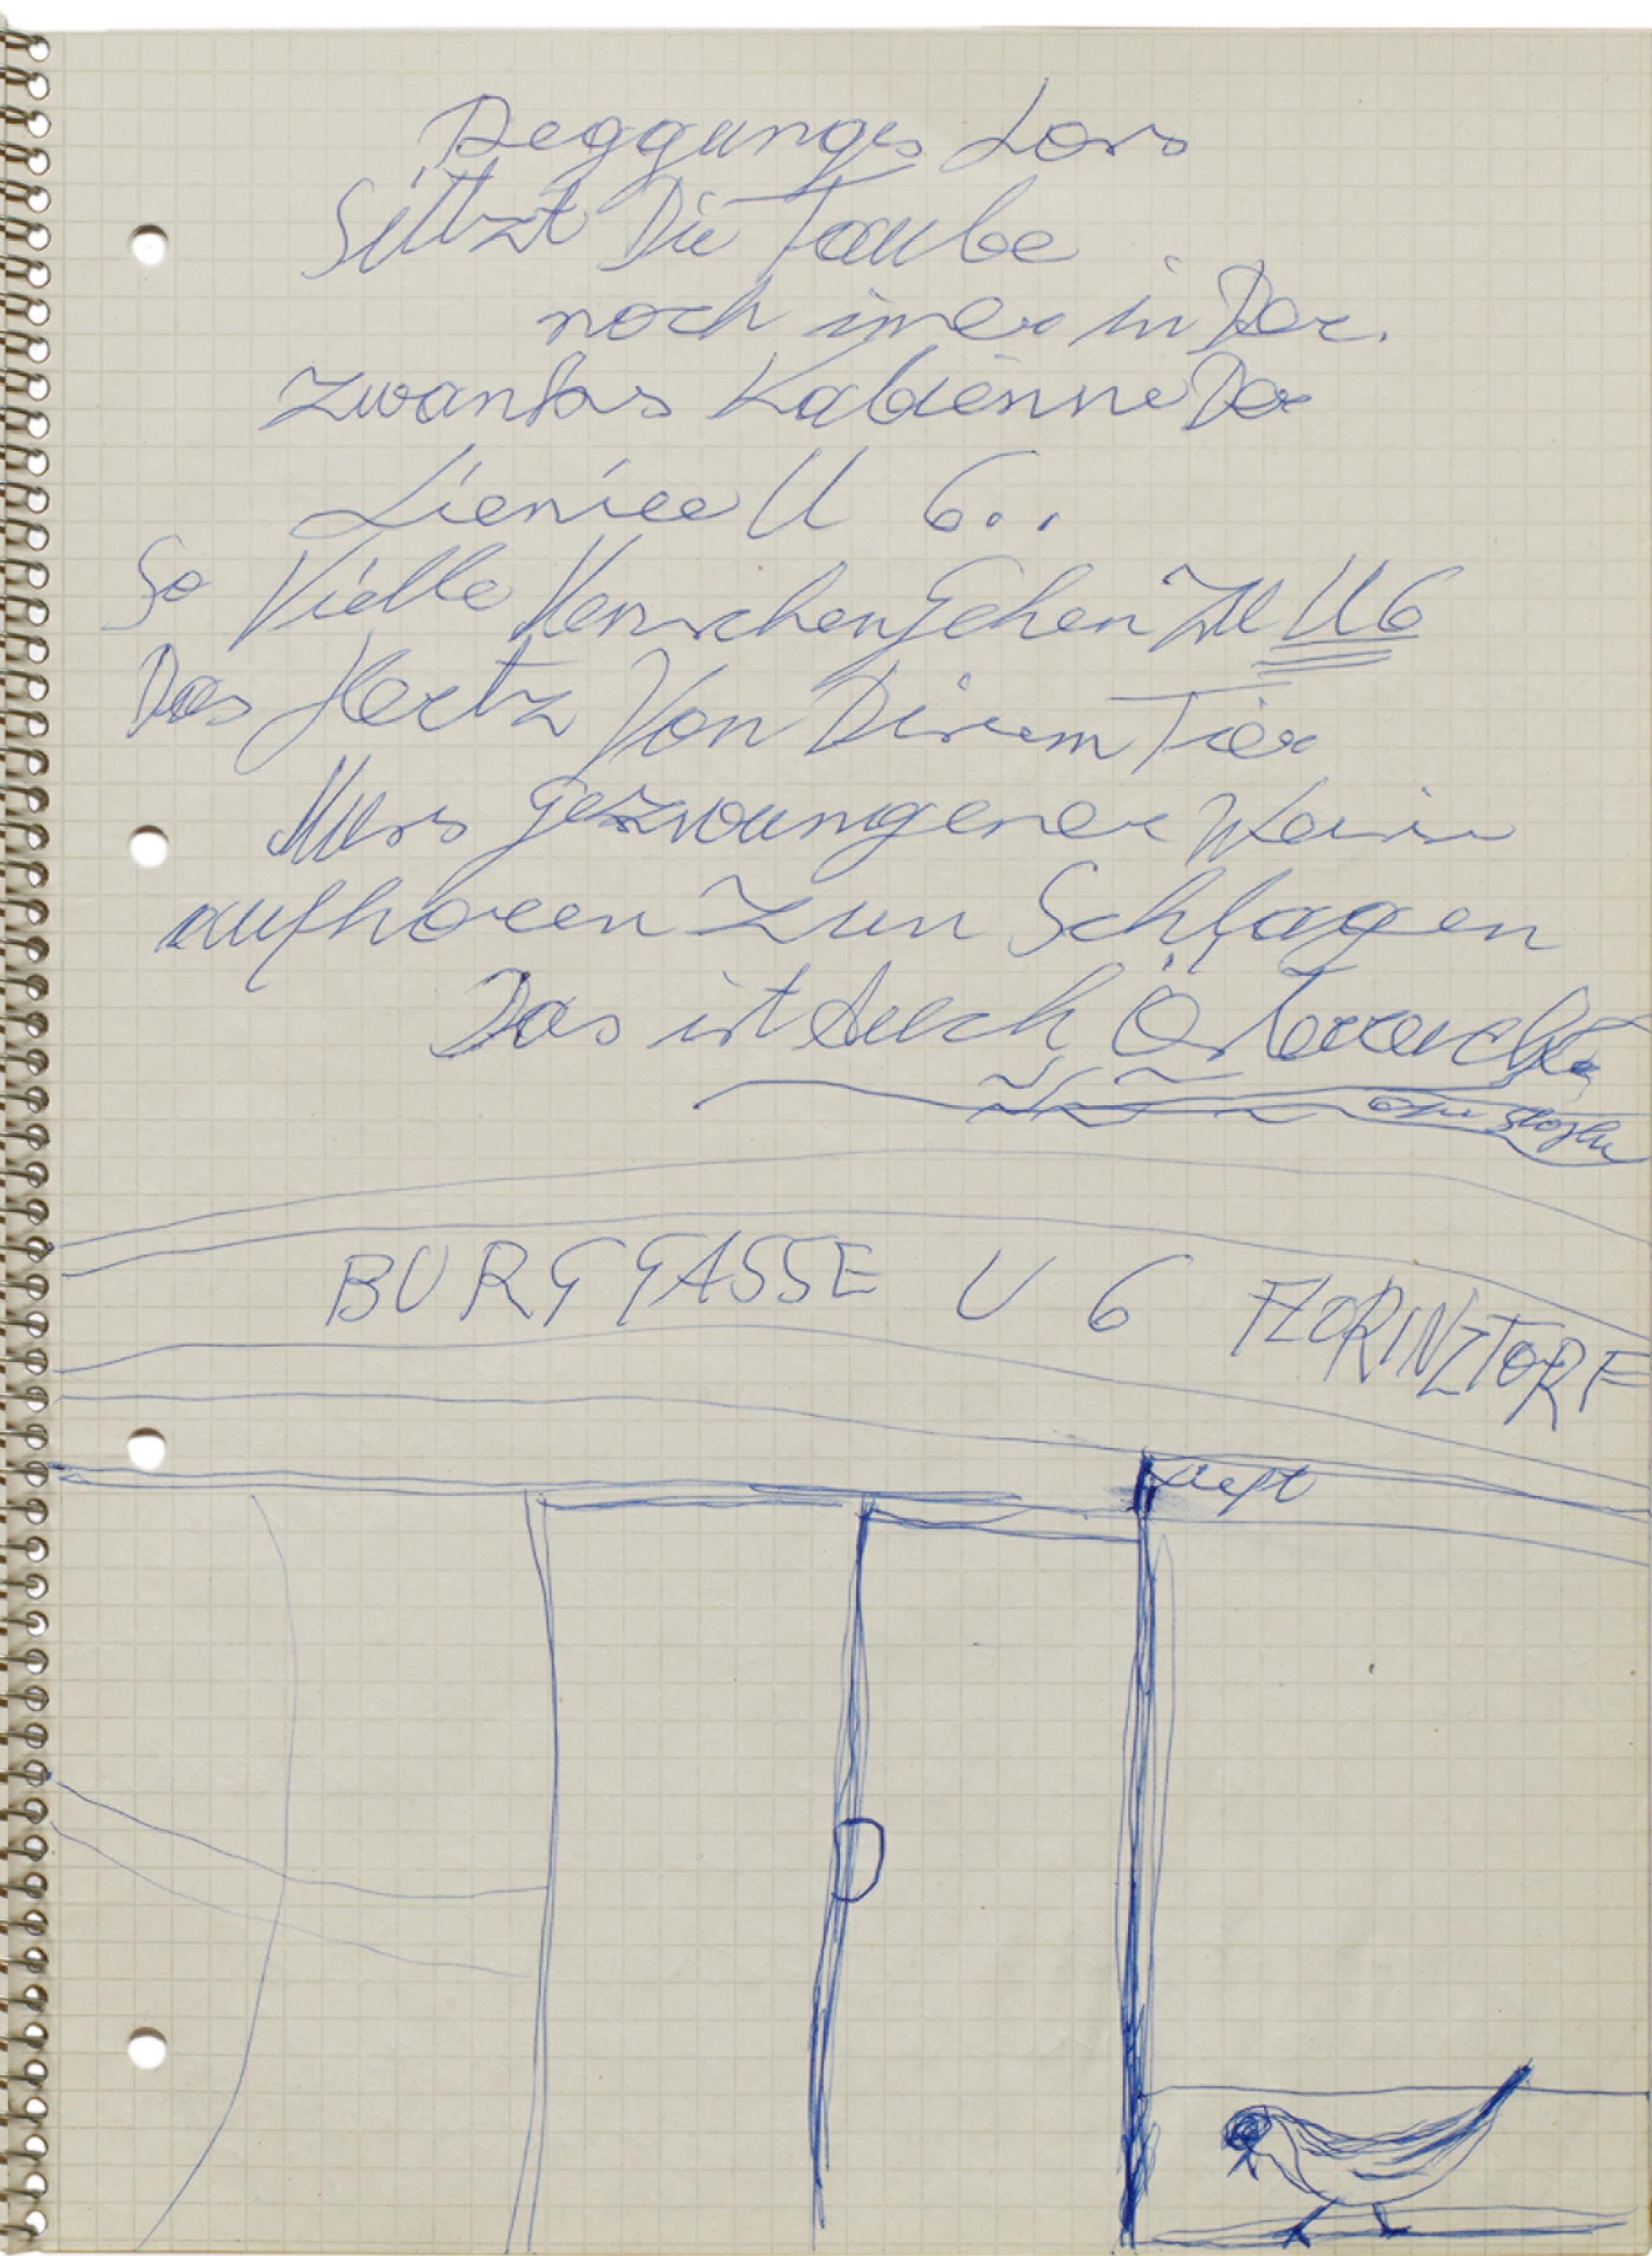 Reggunges Los
Sittzt Die Taube
noch imer in Der.
zwanks Kabienne Der
Lieniee U 6..
So Vielle Menschen gehen zu U6
Das Hertz Von Disem Tier
Muss gezwungener Weise
aufhören zun Schlagen
Das ist Auch Österreich
BURGGASSE U 6 FLORINZTORF
Left